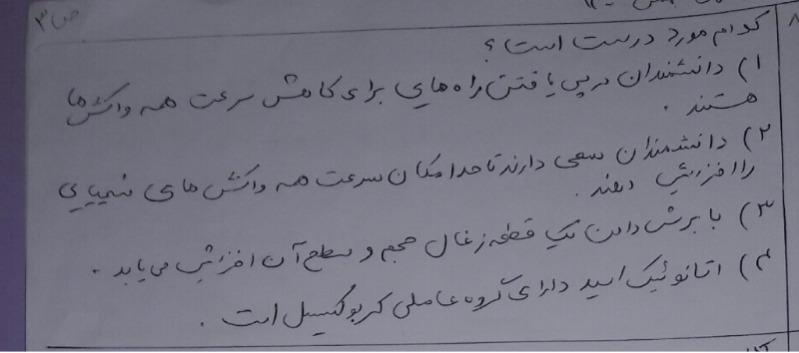 ص ۳
۸
کدام مورد درست است؟
۱) دانشمندان در پی یافتن راه هایی برای کاهش سرعت همه واکنش ها
هستند.
۲) دانشمندان سعی دارند تا حد امکان سرعت همه واکنش های شیمیایی
را افزایش دهند.
۳) با برش دادن یک قطعه زغال حجم و سطح آن افزایش می یابد.
۴) اتانوئیک اسید دارای گروه عاملی کربوکسیل است.